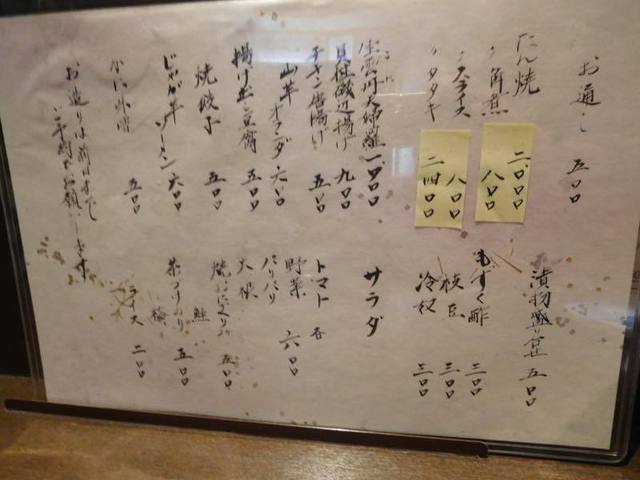 お通し 五〇〇
たん焼 二〇〇〇
〃角煮 八〇〇
〃スライス 八〇〇
〃タタキ 二四〇〇
天婦羅 一、四〇〇
貝柱磯辺揚げ 九〇〇
チキン唐揚げ 五〇〇
山芋オランダ 六〇〇
揚げ出し豆腐 五〇〇
焼餃子 五〇〇
じゃが芋ソーメン 六〇〇
かに味噌 五〇〇
お造りは前日までに
ご予約でお願いします
漬物盛り合せ 五〇〇
もずく酢 三〇〇
枝豆 三〇〇
冷奴 三〇〇
サラダ
トマト 各
野菜 六〇〇
パリパリ
大根
焼おにぎり 五〇〇
鮭
茶づけ のり 五〇〇
梅
ライス 二〇〇